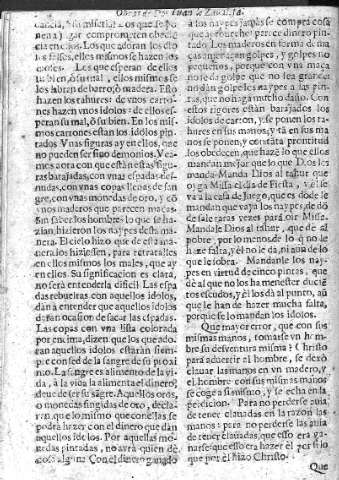 Obras de Don Iuan de Zaualeta.
cencia, su milicia. Lo que se po-
nen a jugar comprometen obedie
encia en ellos. Los que adoran los dio
ses falsos, ellos mismos se hazen los
dioses. Los que esperan de ellos
su bien, ò su mal, ellos mismos se
los labran de barro, ò madera. Esto
hazen los tahures: de vnos carto-
nes hazen vnos idolos: de ellos es-
peran su mal, ò su bien. En los mis-
mos cartones estàn los idolos pin-
tados. Vnas figuras ay en ellos, que
no pueden ser sino demonios. Vea-
mos aora con que estàn estas figu-
ras barajadas, con vnas espadas des-
nudas, con vnas copas llenas de san-
gre, con vnas monedas de oro, y cō
vnos maderos que parecen maças.
Sin saber los hombres lo que se ha-
zian, hizieron los naypes desta ma-
nera. El cielo hizo que de esta ma-
nera los hiziessen, para retratalles
en ellos mismos los males, que ay
en ellos. Su significacion es clara,
no serà entenderla dificil. Las espa-
das rebueltas con aquellos idolos,
dan à entender que aquellos idolos
dan ocasion de sacar las espadas.
Las copas con vna lista colorada
por encima, dizen, que los que ado-
ran aquellos idolos estaràn siem-
pre con sed de la sangre de su proxi-
mo. La sangre es alimento de la vi-
da, à la vida la alimenta el dinero,
deue de ser su sãgre. Aquellos oros,
ò monedas fingidas de oro, decla-
ran, que lo mismo que con ellas se
podrà hazer con el dinero que dan
aquellos idolos. Por aquellas mo-
nedas pintadas, no avrà quien dè
cosa alguna. Con el dinero ganado
a los naypes jamàs se compra cosa
que aproueche: parece otro dinero
pintado. Los maderos en forma de ma-
ças amenaçan golpes, y golpes no
con vna ma-
ça no se dà golpe que no sea grande:
no dàn golpe las pintas à las pin-
tas, que no haga mucho daño. Con
estos rigores estàn barajados los
idolos de carton, y se ponen los ta-
hures en sus manos, y tã en sus ma-
nos se ponen, y con tãta prontitud
los obedecen, que hazē lo que ellos
mandan mejor que lo que Dios les
manda. Manda Dios al tahur que
oyga Missa el dia de Fiesta, y èl se
và à la casa de juego, que es donde le
mandan que vaya los naypes, de dõ
de sale raras vezes para oir Missa.
Mandale Dios al tahur, que dè al
pobre, por lo menos de lo q̃ no le
haze falta, y èl no le dà, ni aun de lo
que le sobra. Mandanle los nay-
pes en virtud de cinco pintas, que
dè al que no los ha menester ducie-
tos escudos, y èl los dà al punto, aũ
que le han de hazer mucha falta,
porque se lo mandan los idolos.
Que mayor error, que con sus
mismas manos, tomarse vn hom-
bre su desventura misma! Christo
para aduertir al hombre, se dexò
clauar las manos en vn madero, y
el hombre con sus mismas manos
se coge à si mismo, y se echa en la
perdicion. Para no perderse auia de
tener clauadas en la razon las
manos: para no perderse las auia
de tener clauadas, que esso era ga-
narse: que esso era hazer por si lo
que por èl hizo Christo.
Que